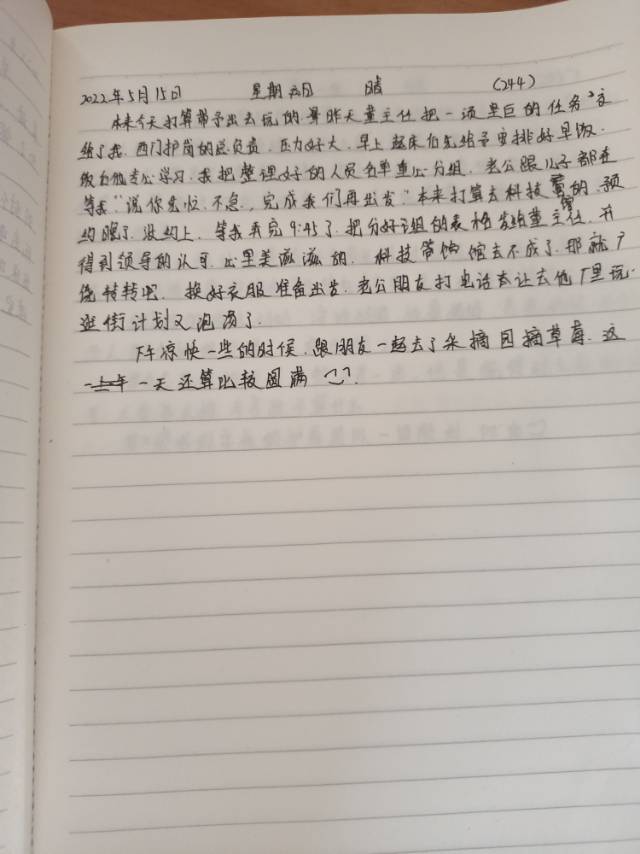 2022年5月15日 星期日 晴 (244)
本来今天打算带予出去玩的, 昨天董主任把一项坚巨的任务交
给了我. 西门护岗的总负责, 压力好大, 早上起床后先给予安排好早饭.
饭后他专心学习. 我把整理好的人员名单重心分组, 老公跟儿子都在
等我"说你忙, 不急, 完成我们再出发". 本来打算去科技的, 预
约晚了. 没约上, 等我弄完9:45了. 把分好组的表格发给董主任, 并
得到领导的认可. 心里美滋滋的. 科技馆去不成了. 那就广
绕转转吧. 换好衣服准备出发, 老公朋友打电话让去他厂里玩.
逛街计划又泡汤了.
下午凉快一些的时候, 跟朋友一起去了采摘园摘草莓. 这
一天还算比较圆满